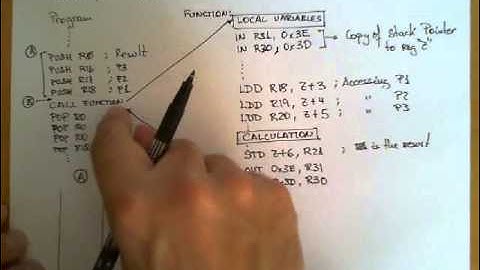 Program
A PUSH R20 ; Result
PUSH R16 ; P3
PUSH R17 ; P2
PUSH R18 ; P1
B CALL FUNCTION
POP R0
POP R0
POP R0
POP
A
FUNCTION:
LOCAL VARIABLES
IN R31, 0x3E
IN R30, 0x3D
Copy of Stack Pointer
to reg "Z"
LDD R18, Z+3 ; Accessing P1
LDD R19, Z+4 ; " P2
LDD R20, Z+5 ; " P3
CALCULATION
STD Z+6, R21 ; is the result
OUT 0x3E, R31
0x3D, R30